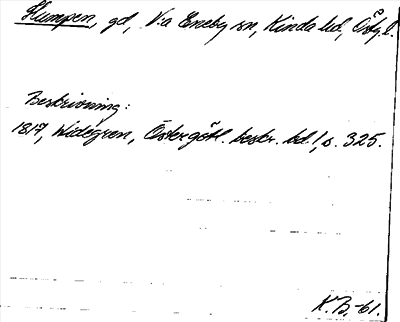 Slumpen, gd, V:a Eneby sn, Kinda hd, Östg.l.
Beskrivning:
1817, Widegren, Östergötl. beskr. bd. 1, s. 325.
K.B.-61.